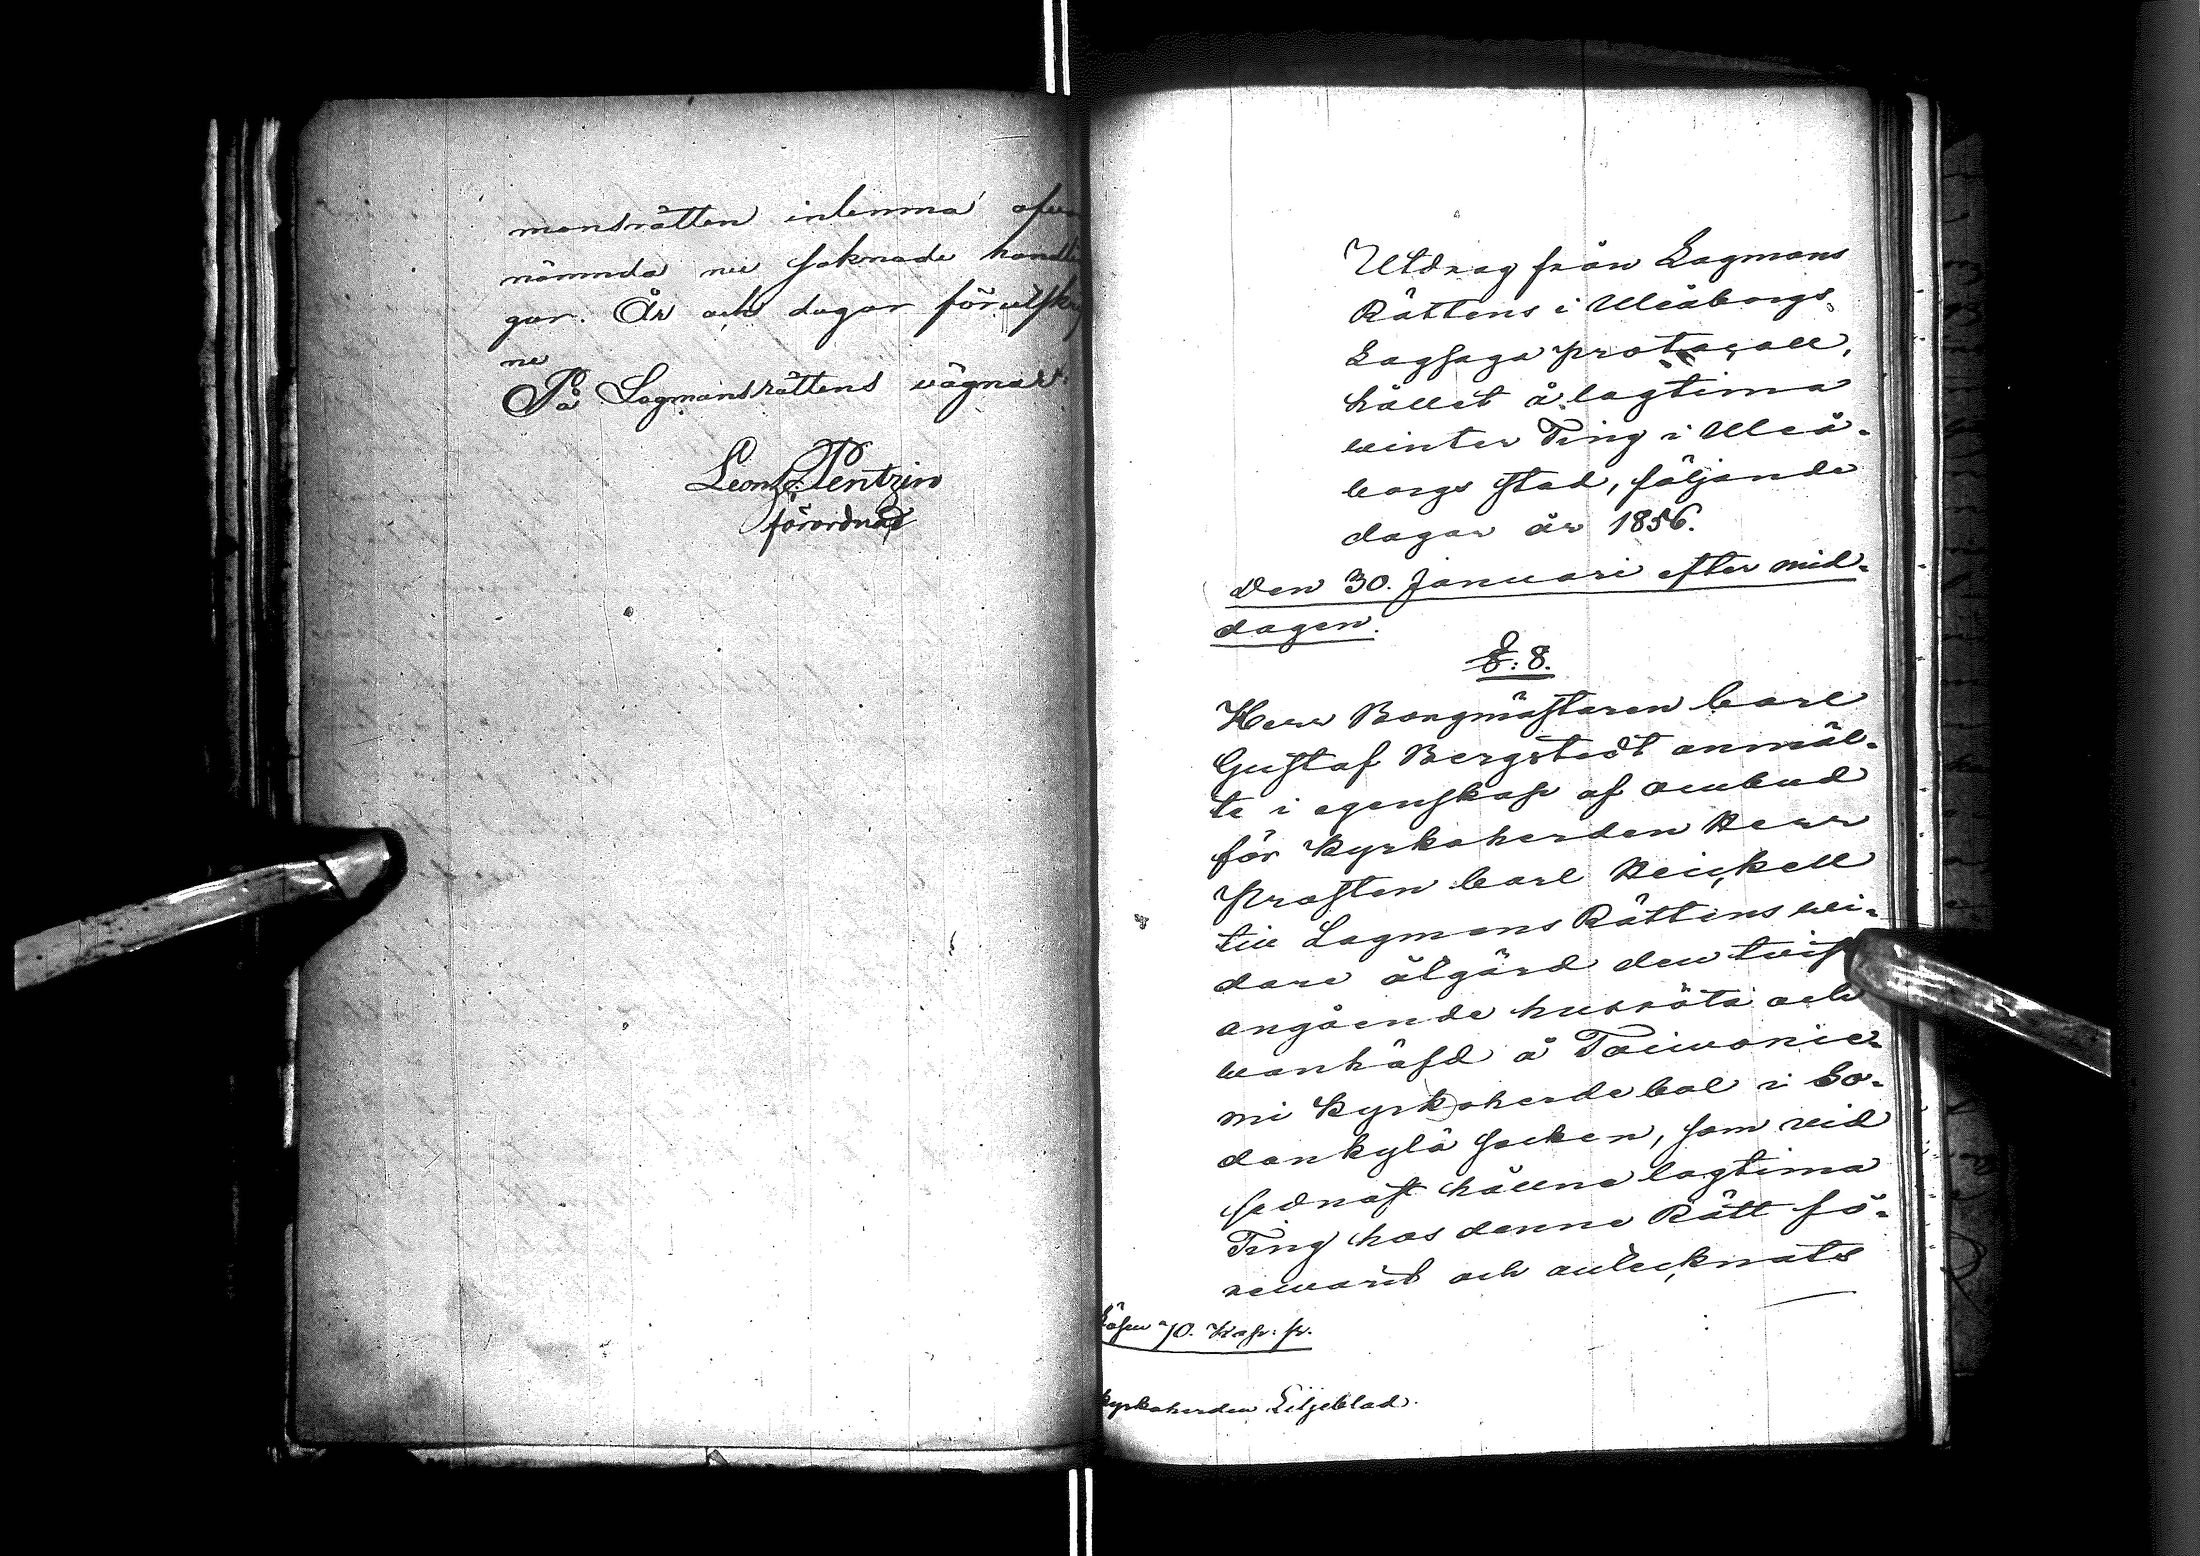 mansrätten inlemna ofvan
nämnda nu saknade handlin
gar. År och dagar förutskrif
ne
På Lagmansrättens vägnar:
Leon. Pentzin
förordnad
Utdrag från Lagmans
Rättens i Uleåborgs
Lagsaga protocoll,
hållet å lagtima
winter Ting i Uleå-
borgs stad, följande
dagar år 1856.
den 30. Januari efter mid-
dagen.
§: 8.
Herr Borgmästaren Carl
Gustaf Bergstedt anmäl-
te i egenskap af ombud
för Kyrkoherden Herr
Prosten Carl Heickell
till Lagmans Rättens wi-
dare åtgärd den twist
angående husröta och
wanhäfd å Taiwonie-
mi Kyrkoherdebol i So-
dankylä socken, som vid
sednast hållna lagtima
Ting hos denne Rätt fö-
rewarit och antecknats
Lösen 70. Kop: sr.
Kyrkoherden Liljeblad.